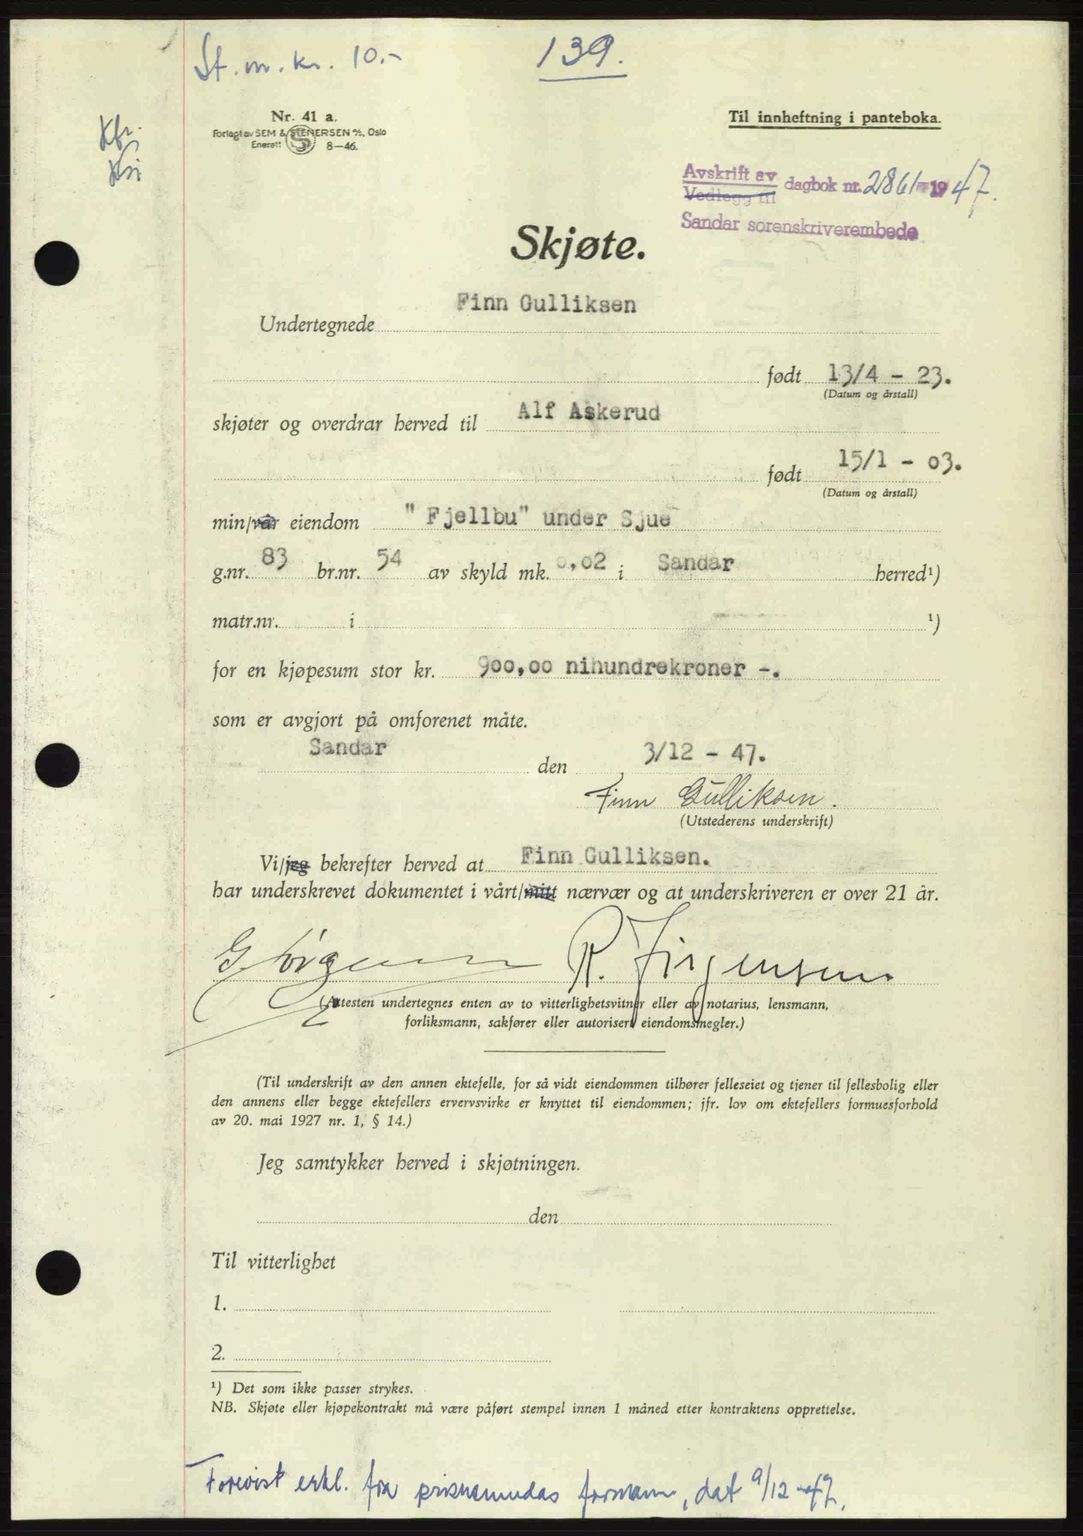 St. m. kr. 10.-
139.
Kfr.
Nr. 41 a.
Til innheftning i panteboka.
Forlagt av SEM & STENERSEN A/S, Oslo
Enerett 8-46.
Avskrift av
Vedlegg til
dagbok nr. 2861 - 1947.
Sandar sorenskriverembede
Skjøte.
Undertegnede Finn Gulliksen
født 13/4 - 23.
(Datum og årstall)
skjøter og overdrar herved til Alf Askerud
født 15/1 - 03.
(Datum og årstall)
min/vår eiendom "Fjellbu" under Sjue
g.nr. 83 br.nr. 54 av skyld mk. 0,02 i Sandar herred¹)
matr.nr. i ¹)
for en kjøpesum stor kr. 900,00 nihundrekroner -.
som er avgjort på omforenet måte.
Sandar den 3/12 - 47.
Finn Gulliksen.
(Utstederens underskrift)
Vi/jeg bekrefter herved at Finn Gulliksen.
har underskrevet dokumentet i vårt/mitt nærvær og at underskriveren er over 21 år.
G. Jørgensen R. Jørgensen
(Attesten undertegnes enten av to vitterlighetsvitner eller av notarius, lensmann,
forliksmann, sakfører eller autorisert eiendomsmegler.)
(Til underskrift av den annen ektefelle, for så vidt eiendommen tilhører felleseiet og tjener til fellesbolig eller
den annens eller begge ektefellers ervervsvirke er knyttet til eiendommen; jfr. lov om ektefellers formuesforhold
av 20. mai 1927 nr. 1, § 14.)
Jeg samtykker herved i skjøtningen.
den
Til vitterlighet
1.
2.
¹) Det som ikke passer strykes.
NB. Skjøte eller kjøpekontrakt må være påført stempel innen 1 måned etter kontraktens opprettelse.
Forevist erkl. fra prisnemndas formann, dat 9/12-47.